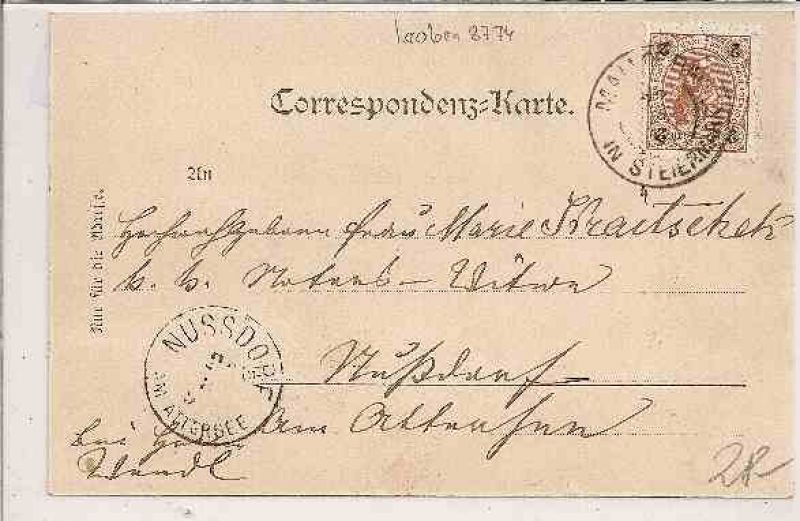 Leoben 8774
Correspondenz-Karte.
2 2
2 2
IN STEIERMARK
An
Nur für die Adresse.
Hochwohlgeboren Frau Marie Kraitschek
k. k. Notars-Witwe
NUSSDORF
AM ATTERSEE
Nußdorf
Am Attersee
bei
Wendl
28-